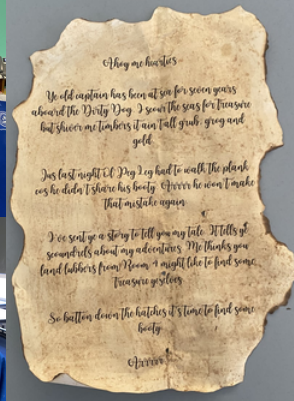 Ahoy me hearties
Ye old captain has been at sea for seven years
aboard the Dirty Dog. I scour the seas for treasure
but shiver me timbers it ain't all grub, grog and
gold.
Jus last night Ol Peg Leg had to walk the plank
cos he didn't share his booty. Arrrrr he won't make
that mistake again.
I've sent ye a story to tell you my tale. It tells ye
scoundrels about my adventures. Me thinks you
land lubbers from Room 4 might like to find some
treasure yuselves.
So batton down the hatches it's time to find some
booty.
Arrrrr